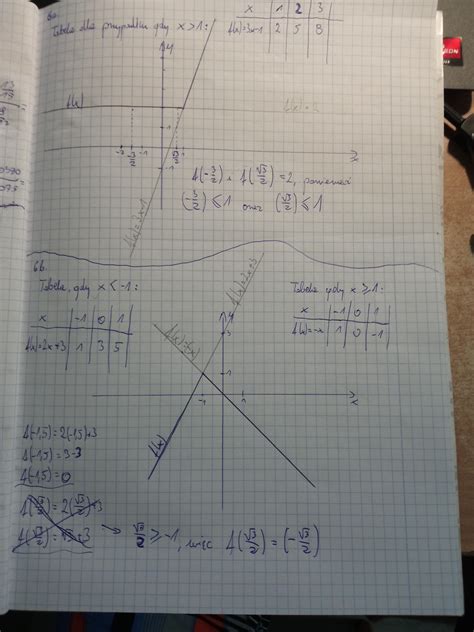 6a
Tabela dla przypadku gdy x > 1:
x 1 2 3
f(x)=3x-1 2 5 8
y
f(x)
f(x)=2
1
-2 -3/2 -1 1 √3/2
-1
x
f(x)=3x-1
f(-3/2) i f(√3/2) = 2, ponieważ
(-3/2) ≤ 1 oraz (√3/2) ≤ 1
6b.
Tabela, gdy x < -1:
x -1 0 1
f(x)=2x+3 1 3 5
Tabela gdy x ≥ -1:
x -1 0 1
f(x)=-x 1 0 -1
f(x)=2x+3
f(x)=-x
y
3
1
-1 1
x
f(x)
f(-1,5) = 2(-1,5)+3
f(-1,5) = 3-3
f(-1,5) = 0
f(√3/2) = 2(√3/2)+3
f(√3/2) = √3+3
→ √3/2 ≥ -1, więc f(√3/2) = (-√3/2)